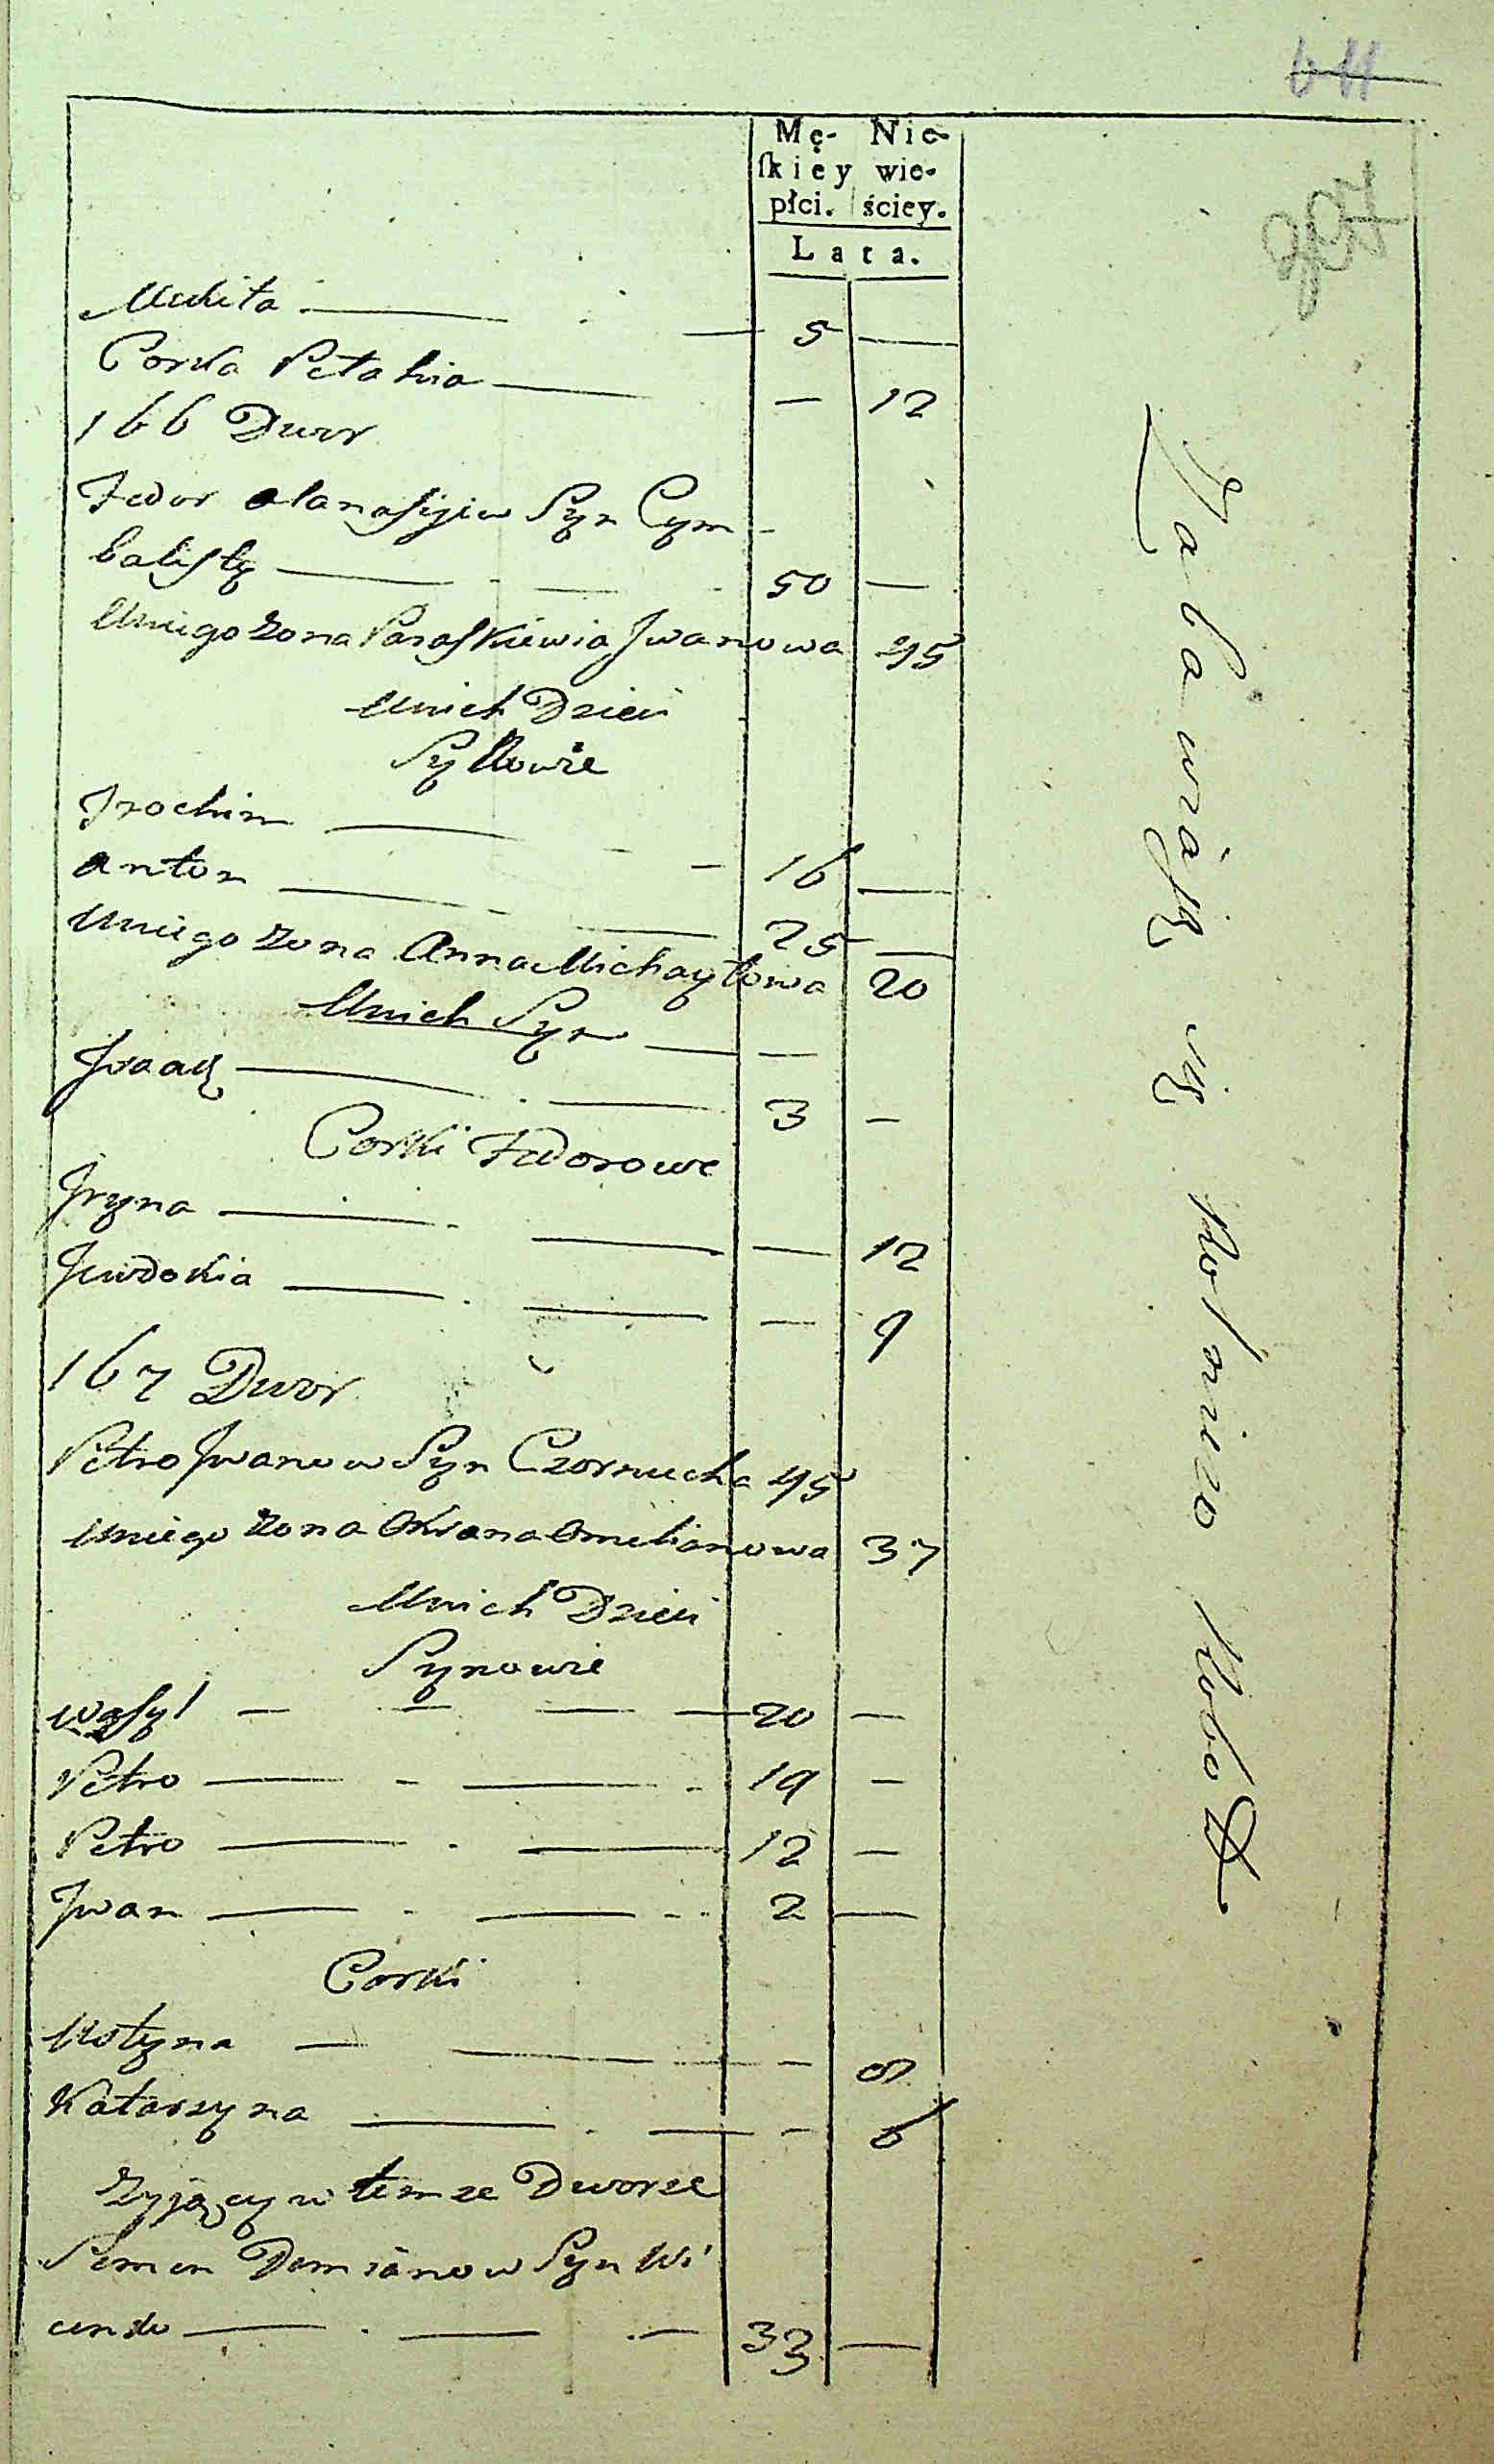 611
Mę- Nie-
ſkiey wie-
płci. ściey.
Lata.
Mikita — 5 —
Corka Pelahia — — 12
166 Dwor
Fedor Atanaſijiw Syn Cym
baliſty — 50 —
Uniego żona Paraſkiewia Jwanowa 45
Unich Dzieci
Synowie
Jrochim — 16 —
Anton — 25 —
Uniego żona Anna Michayłowa 20
Unich Syn — —
Jsaak — 3 —
Corki Fedorowe
Jryna — — 12
Jewdokia — — 9
167 Dwor
Petro Jwanow Syn Czornucha 45
Uniego żona Oksana Omelianowa 37
Unich Dzieci
Synowie
Waſyl — 20 —
Petro — 19 —
Petro — 12 —
Jwan — 2 —
Corki
Ustyna — — 8
Katarzyna — — 6
Zyjący w temże Dworze
Semen Demianow Syn Wi
cenko — 33 —
Zabawiają się Rolniczo Robotą